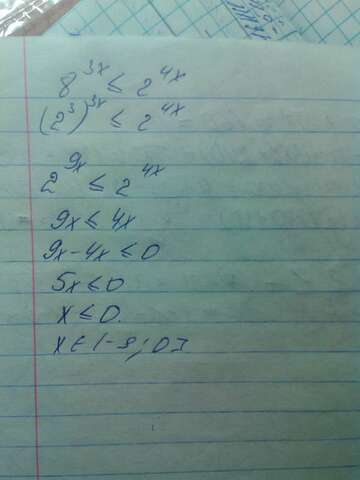 8^{3x} ≤ 2^{4x}
(2^3)^{3x} ≤ 2^{4x}
2^{9x} ≤ 2^{4x}
9x ≤ 4x
9x - 4x ≤ 0
5x ≤ 0
x ≤ 0.
x ∈ (-∞; 0]